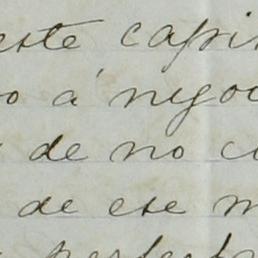 este capi
o á nego
de no c
de ese m